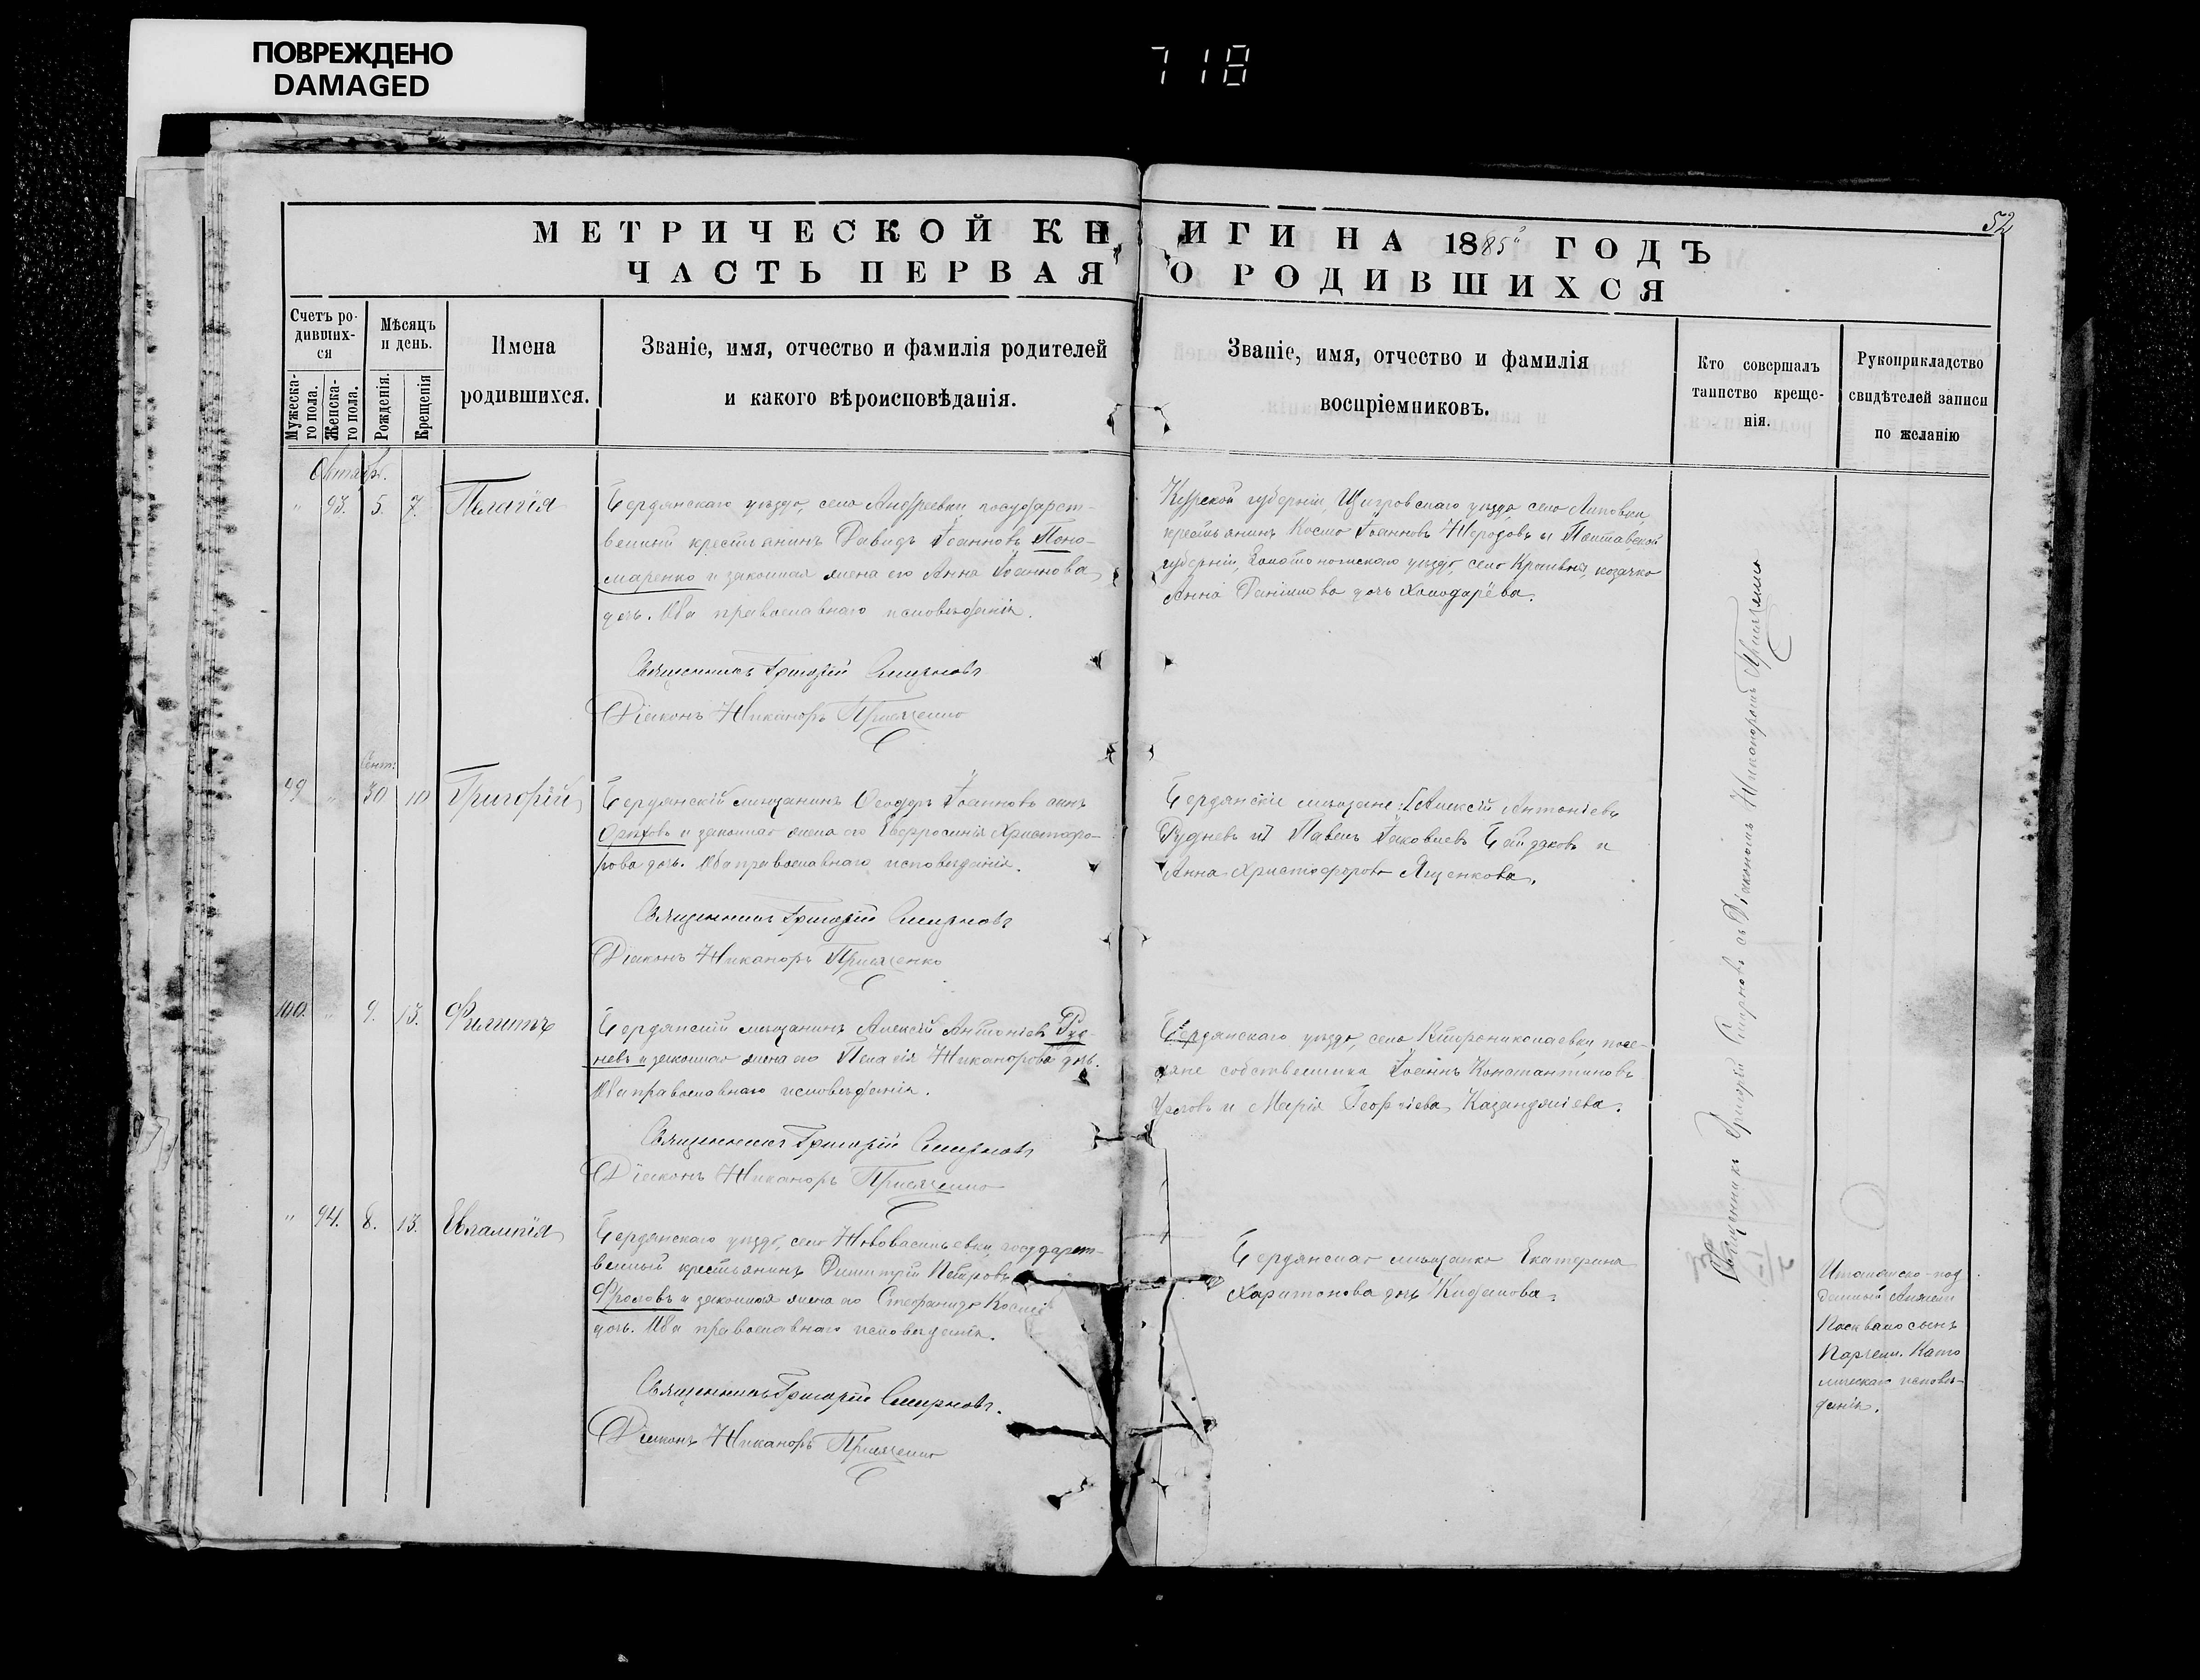 ПОВРЕЖДЕНО
DAMAGED
718
52
МЕТРИЧЕСКОЙ КНИГИ НА 1885 ГОДЪ
ЧАСТЬ ПЕРВАЯ О РОДИВШИХСЯ
Счетъ ро-
дивших-
ся
Мужеска-
го пола.
Женска-
го пола.
Мѣсяцъ
и день.
Рожденія.
Крещенія
Имена
родившихся.
Званіе, имя, отчество и фамилія родителей
и какого вѣроисповѣданія.
Званіе, имя, отчество и фамилія
воспріемниковъ.
Кто совершалъ
таинство креще-
нія.
Рукоприкладство
свидѣтелей записи
по желанію
Октябр.
" 93. 5. 7. Пелагія
Бердянскаго уѣзда, села Андреевки государст-
венный крестьянинъ Давидъ Іоанновъ Поно-
маренко и законная жена его Анна Іоаннова
дочь. Оба православнаго исповѣданія.
Священникъ Григорій Смирновъ
Діаконъ Никаноръ Приаженко
Курской губерніи, Щигровскаго уѣзда, села Липовки
крестьянинъ Косма Іоанновъ и Полтавской
губерніи, Золотоношскаго уѣзда, села козачка
Анна дочь Холодарёва.
Сент.
99 " 30 10 Григорій
Бердянскій мѣщанинъ Ѳеодоръ Іоанновъ сынъ
Орѣховъ и законная жена его Евфросинія Христофо-
рова дочь. Оба православнаго исповѣданія.
Священникъ Григорій Смирновъ
Діаконъ Никаноръ Приаженко
Бердянскіе мѣщане: [Алексій Антоніевъ
Рудневъ и] Павелъ Іаковлевъ Байдаковъ и
Анна Христофорова Ященкова.
100. " 9. 13. Филиппъ
Бердянскій мѣщанинъ Алексій Антоніевъ Руд-
невъ и законная жена его Пелагія Никанорова дочь.
Оба православнаго исповѣданія.
Священникъ Григорій Смирновъ
Діаконъ Никаноръ Приаженко
Бердянскаго уѣзда, села посе-
ляне собственники Іоаннъ Константиновъ
и Марія Георгіева Казанджіева.
" 94. 8. 13. Евлампія
Бердянскаго уѣзда, села Нововасильевки, государст-
венный крестьянинъ Димитрій Петровъ
Фроловъ и законная жена его Стефанида Косміе
дочь. Оба православнаго исповѣданія.
Священникъ Григорій Смирновъ.
Діаконъ Никаноръ Приаженко
Бердянская мѣщанка Екатерина
Харитонова дочь
Священникъ Григорій Смирновъ съ Діакономъ Никаноромъ Приаженко
Итальянско-под
данный
сынъ
Като
лическаго исповѣ-
данія.